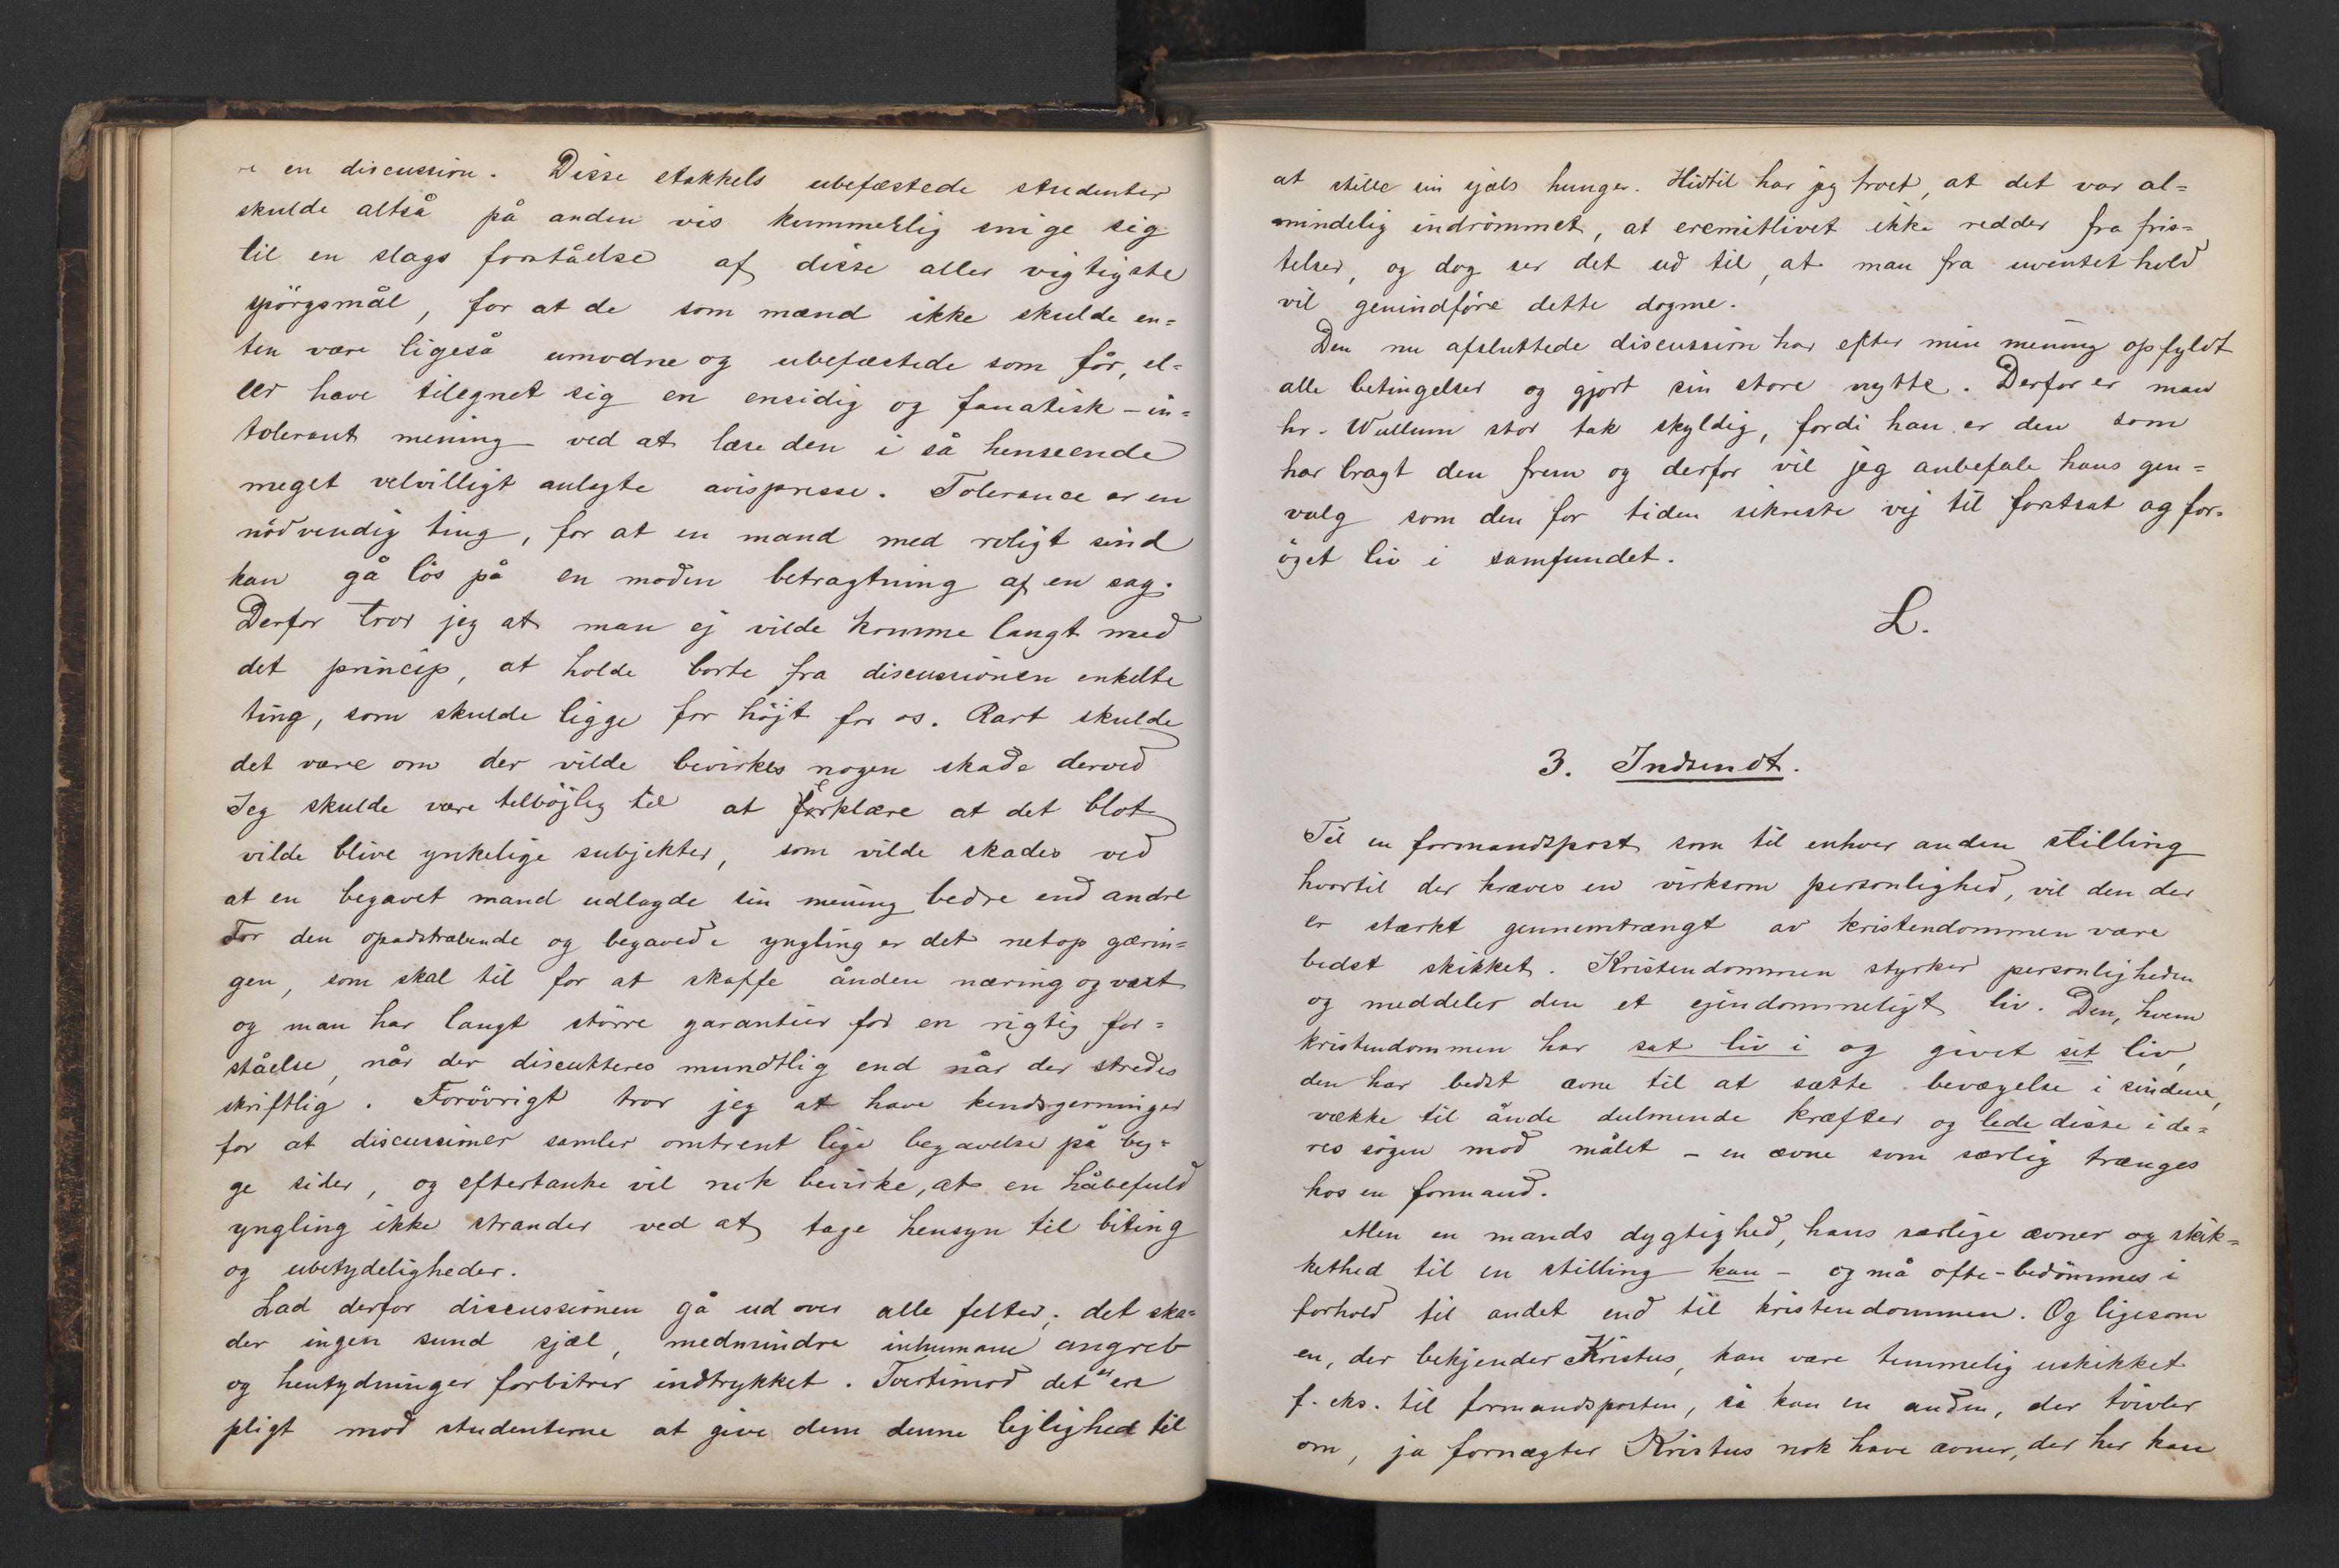 en discussion. Disse stakkels ubefæstede studenter
skulde altså på anden vis kummerlig snige sig
til en slags forståelse af disse aller vigtigste
spörgsmål, for at de som mænd ikke skulde en=
ten være ligeså umodne og ubefæstede som för, el=
ler have tilegnet sig en ensidig og fanatisk-in=
tolerant mening ved at læse den i så henseende
meget velvilligt anlagte avispresse. Tolerance er en
nödvendig ting, for at en mand med roligt sind
kan gå lös på en moden betragtning af en sag.
Derfor tror jeg at man ej vilde komme langt med
det princip, at holde borte fra discussionen enkelte
ting, som skulde ligge for höjt for os. Rart skulde
det være om der vilde bevirkes nogen skade derved
Jeg skulde være tilböjlig til at forklære at det blot
vilde blive ynkelige subjekter, som vilde skades ved
at en begavet mand udlagde sin mening bedre end andre
For den opadstræbende og begavede yngling er det netop gærin=
gen, som skal til for at skaffe ånden næring og vext
og man har langt större garantier for en rigtig for=
ståelse, når der discutteres mundtlig end når der stredes
skriftlig. Forövrigt tror jeg at have kendsgerninger
for at discussioner samler omtrent lige begavelse på beg=
ge sider, og eftertanke vil nok bevirke, at en håbefuld
yngling ikke strander ved at tage hensyn til biting
og ubetydeligheder.
Lad derfor discussionen gå ud over alle felter; det ska=
der ingen sund sjæl, medmindre inhumane angreb
og hentydninger forbitrer indtrykket. Tvertimod det er en
pligt mod studenterne at give dem denne lejlighed til
at stille sin sjæls hunger. Hidtil har jeg troet, at det var al=
mindelig indrömmet, at eremitlivet ikke redder fra fris=
telser, og dog ser det ud til, at man fra uventet hold
vil genindföre dette dogme.
Den nu afsluttede discussion har efter min mening opfyldt
alle betingelser og gjort sin store nytte. Derfor er man
hr. Wullum stor tak skyldig, fordi han er den som
har bragt den frem og derfor vil jeg anbefale hans gen=
valg som den for tiden sikreste vej til fortsat og for=
öget liv i samfundet.
L.
3. Indsendt.
Til en formandspost som til enhver anden stilling
hvortil der kræves en virksom personlighed, vil den der
er stærkt gennemtrængt av kristendommen være
bedst skikket. Kristendommen styrker personligheden
og meddeler den et ejendommeligt liv. Den, hvem
kristendommen har sat liv i og givet sit liv,
den har bedst ævne til at sætte bevægelse i sindene,
vække til ånde dulmende kræfter og lede disse i de=
res sögen mod målet - en ævne som særlig trænges
hos en formand.
Men en mands dygtighed, hans særlige ævner og skik=
kethed til en stilling kan - og må ofte - bedömmes i
forhold til andet end til kristendommen. Og ligesom
en, der bekjender Kristus, kan være temmelig uskikket
f. eks. til formandsposten, så kan en anden, der tvivler
om, ja fornægter Kristus nok have ævner, der her kan